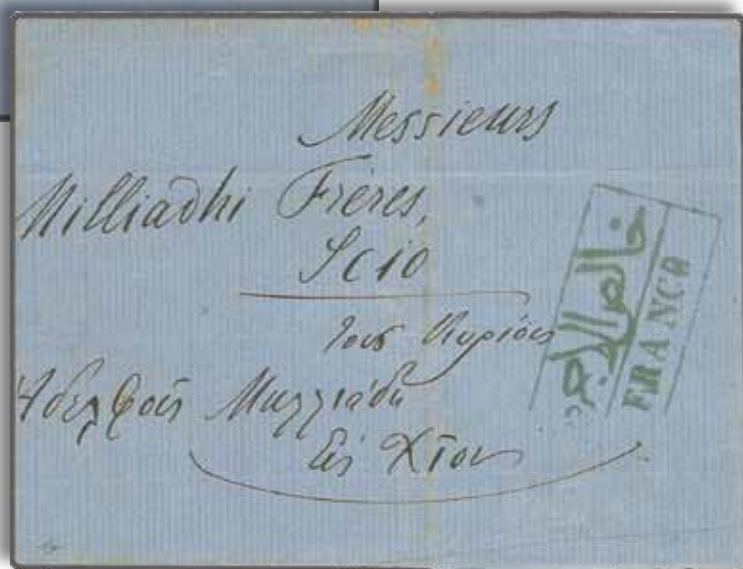 Messieurs
Milliadhi Frères,
Scio
τους Κυρίους
Ἀδελφοῖς
Εἰς Χίον
خالص الاجره
FRANCO